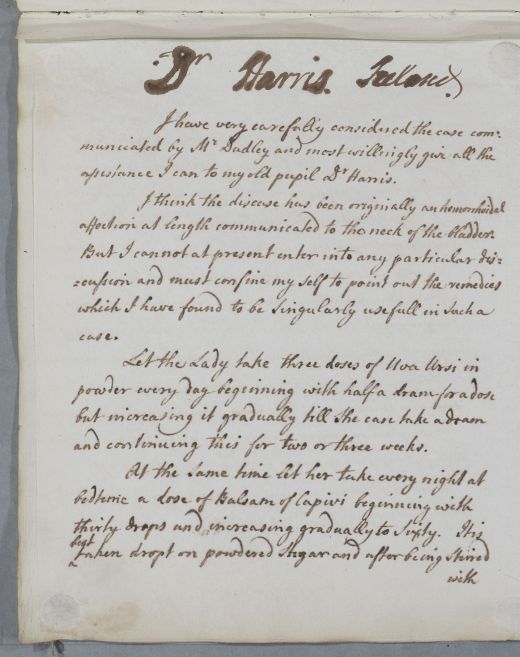 Dr Harris. Ireland
I have very carefully considered the case com:
municated by Mr Dudley and most willingly give all the
assistance I can to my old pupil Dr Harris.
I think the disease has been originally an hemorrhoidal
affection at length communicated to the neck of the bladder.
But I cannot at present enter into any particular dis:
:cussion and must confine my self to point out the remedies
which I have found to be singularly usefull in such a
case.
Let the Lady take three doses of Uva Ursi in
powder every day beginning with half a dram for a dose
but increasing it gradually till She can take a dram
and continuing this for two or three weeks.
At the same time let her take every night at
bedtime a dose of Balsam of Capivi beginning with
thirty drops and increasing gradually to Sixty. It is
best
^taken dropt on powdered Sugar and after being stirred
with